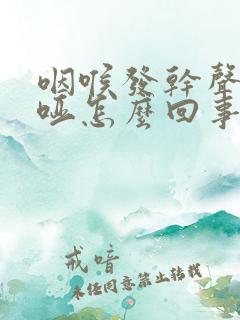 咽喉發幹聲
啞怎麼回事
戒喑
未任同意禁止转载